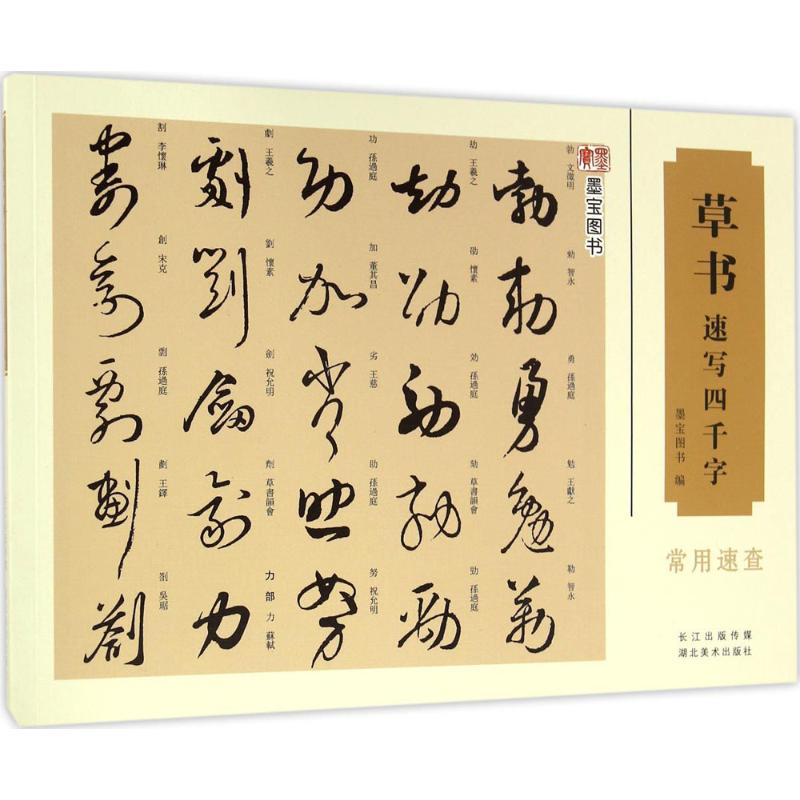 草书
速写四千字
墨宝图书 编
常用速查
长江出版传媒
湖北美术出版社
墨宝
墨宝图书
勃 文徵明
勅 智永
勇 孫過庭
勉 王獻之
勒 智永
劫 王羲之
劾 孫過庭
勁 孫過庭
功 孫過庭
加 董其昌
劣 王慈
助 孫過庭
努 祝允明
劇 王羲之
劉 懷素
劍 祝允明
劑 草書韻會
力部 力 蘇軾
割 李懷琳
創 宋克
剽 孫過庭
劃 王鐸
劄 吳琚